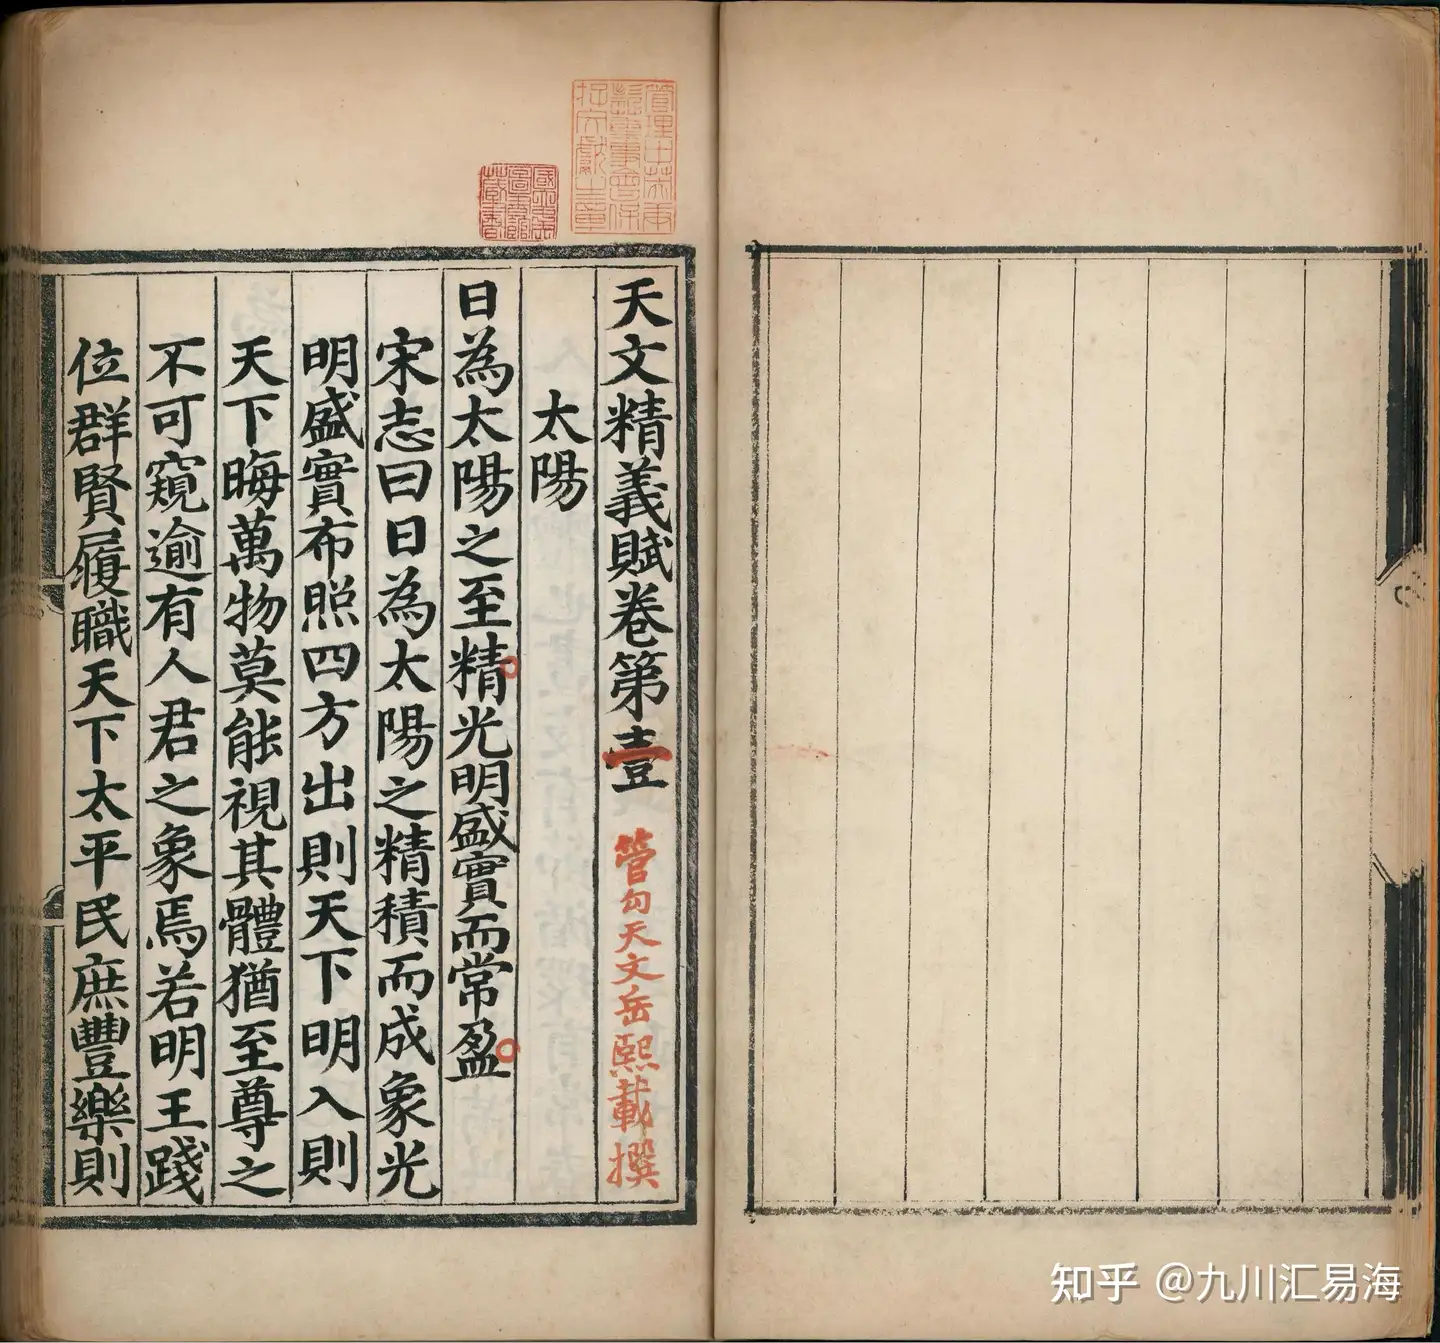 天文精義賦卷第壹 管勾天文岳熙載撰
太陽
日為太陽之至精光明盛實而常盈
宋志曰日為太陽之精積而成象光
明盛實布照四方出則天下明入則
天下晦萬物莫能視其體猶至尊之
不可窺逾有人君之象焉若明王踐
位群賢履職天下太平民庶豐樂則
管理中英庚款董事會保存文獻之章
國立中央圖書館藏書
知乎 @九川汇易海